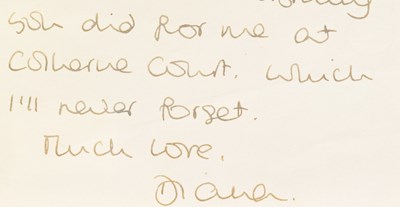 you did for me at
Catherine Court. which
I'll never forget.
Much Love.
Diana.